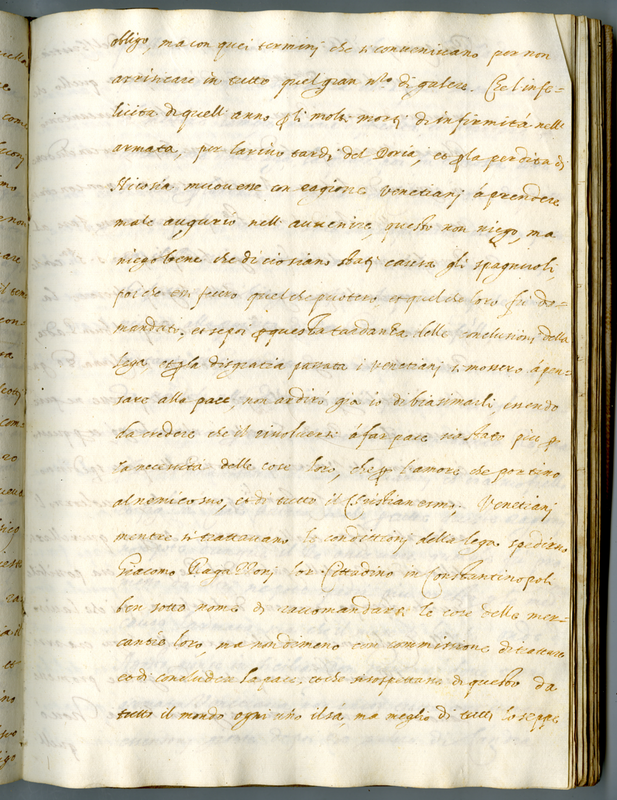 obligo, ma con quei terminj che si convenivano per non
arrisicare in tutto quel gran n.ro di galere. Che l'infe-
licità di quell'anno, gli molti mortj di infirmità nelle
armata, per l'arivo tardi del Doria, et la perdita di
Nicosia movessero con ragione Venetianj à prendere
male augurio nell'auvenire, questo non niego, ma
niego bene che di ciò siano statj causa gli spagnuoli,
che fecero quel che puotero et quel che loro fu do-
mandato, et se poi questa tardanza delle conclusionj della
lega et la disgratia passata i Venetianj si mossero à pen-
sare alla pace, non ardirò già io di biasimarli, essendo
da credere che il risolversi à far pace sia stato più
la necessità delle cose loro, che l'amore che portino
al nemico suo, et di tutto il Christianesmo. Venetianj
mentre si trattavano le condittionj della lega spedirno
Giacomo Ragazzonj lor Cittadino in Constantinopoli
ben sotto nome di raccomandarsi le cose della mer-
cantia loro, ma nondimeno con commissione di trattare
et di concluder la pace, et che si sospettava di questo da
tutto il mondo ogni uno il sà, ma meglio di tutti lo seppe